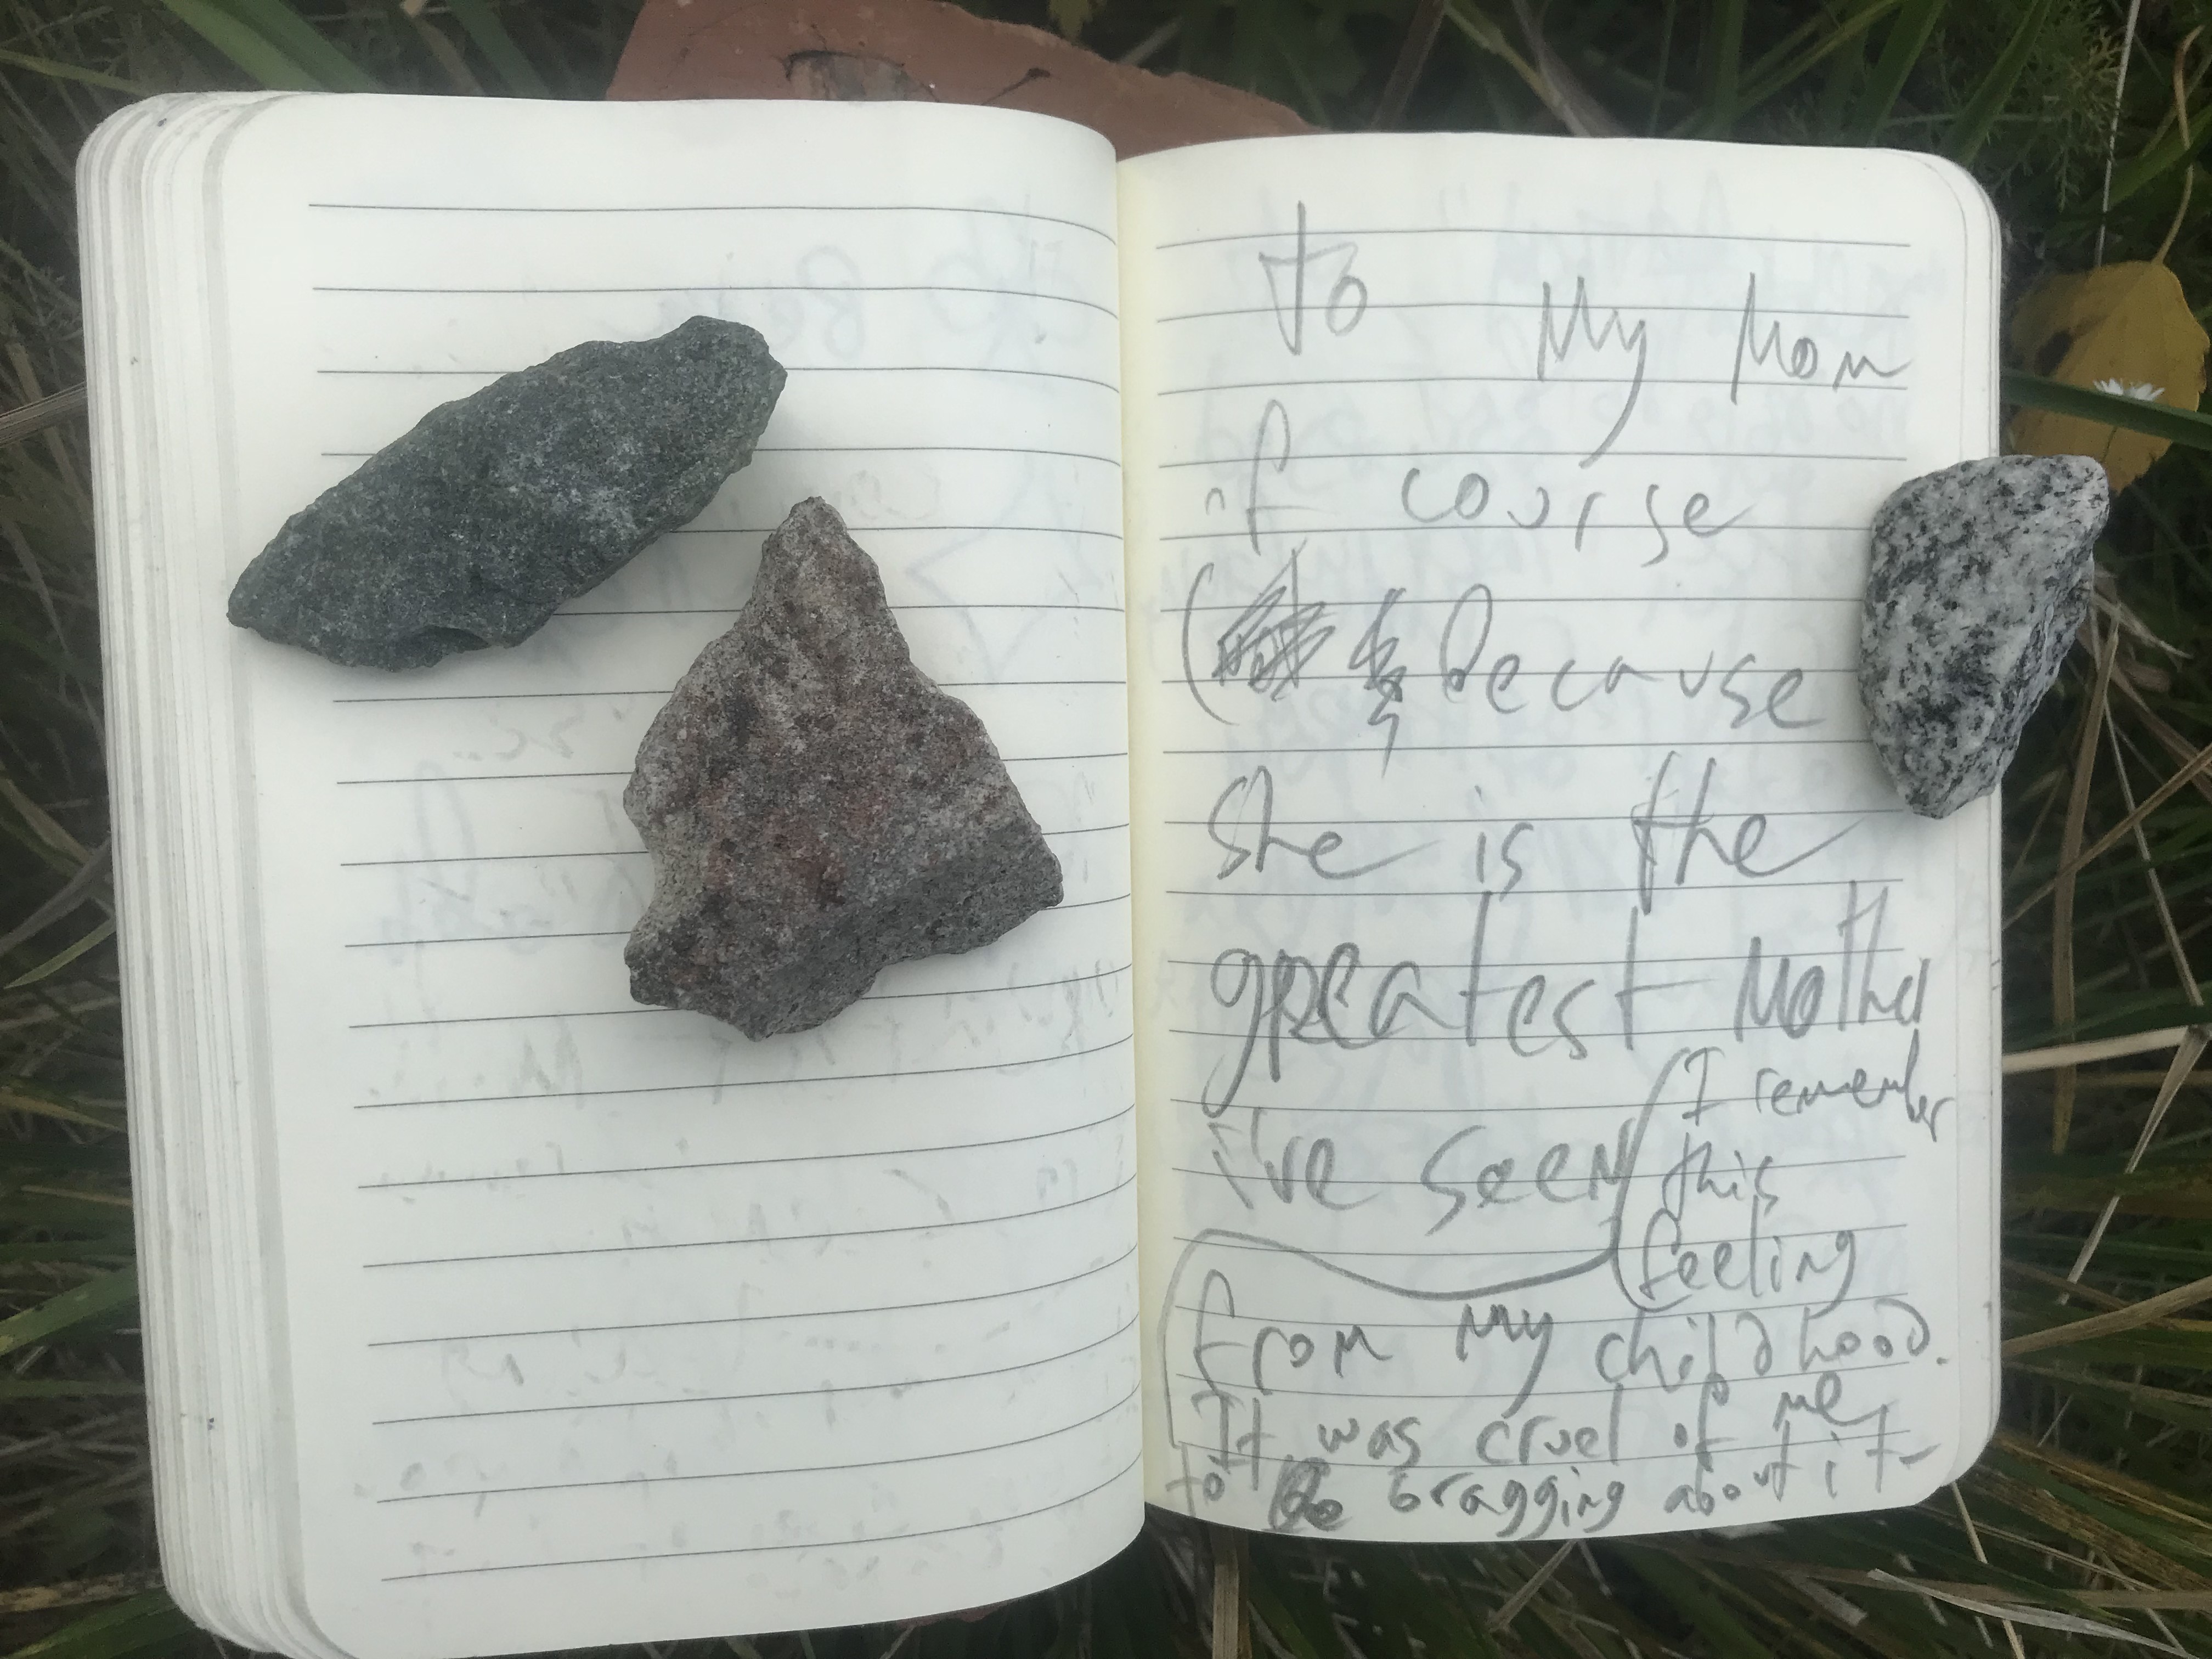 To My Mom
of course
( Because
She is the
greatest Motha
I've seen
I remember
this
feeling
from my childhood.
It was cruel of me
to be bragging about it-